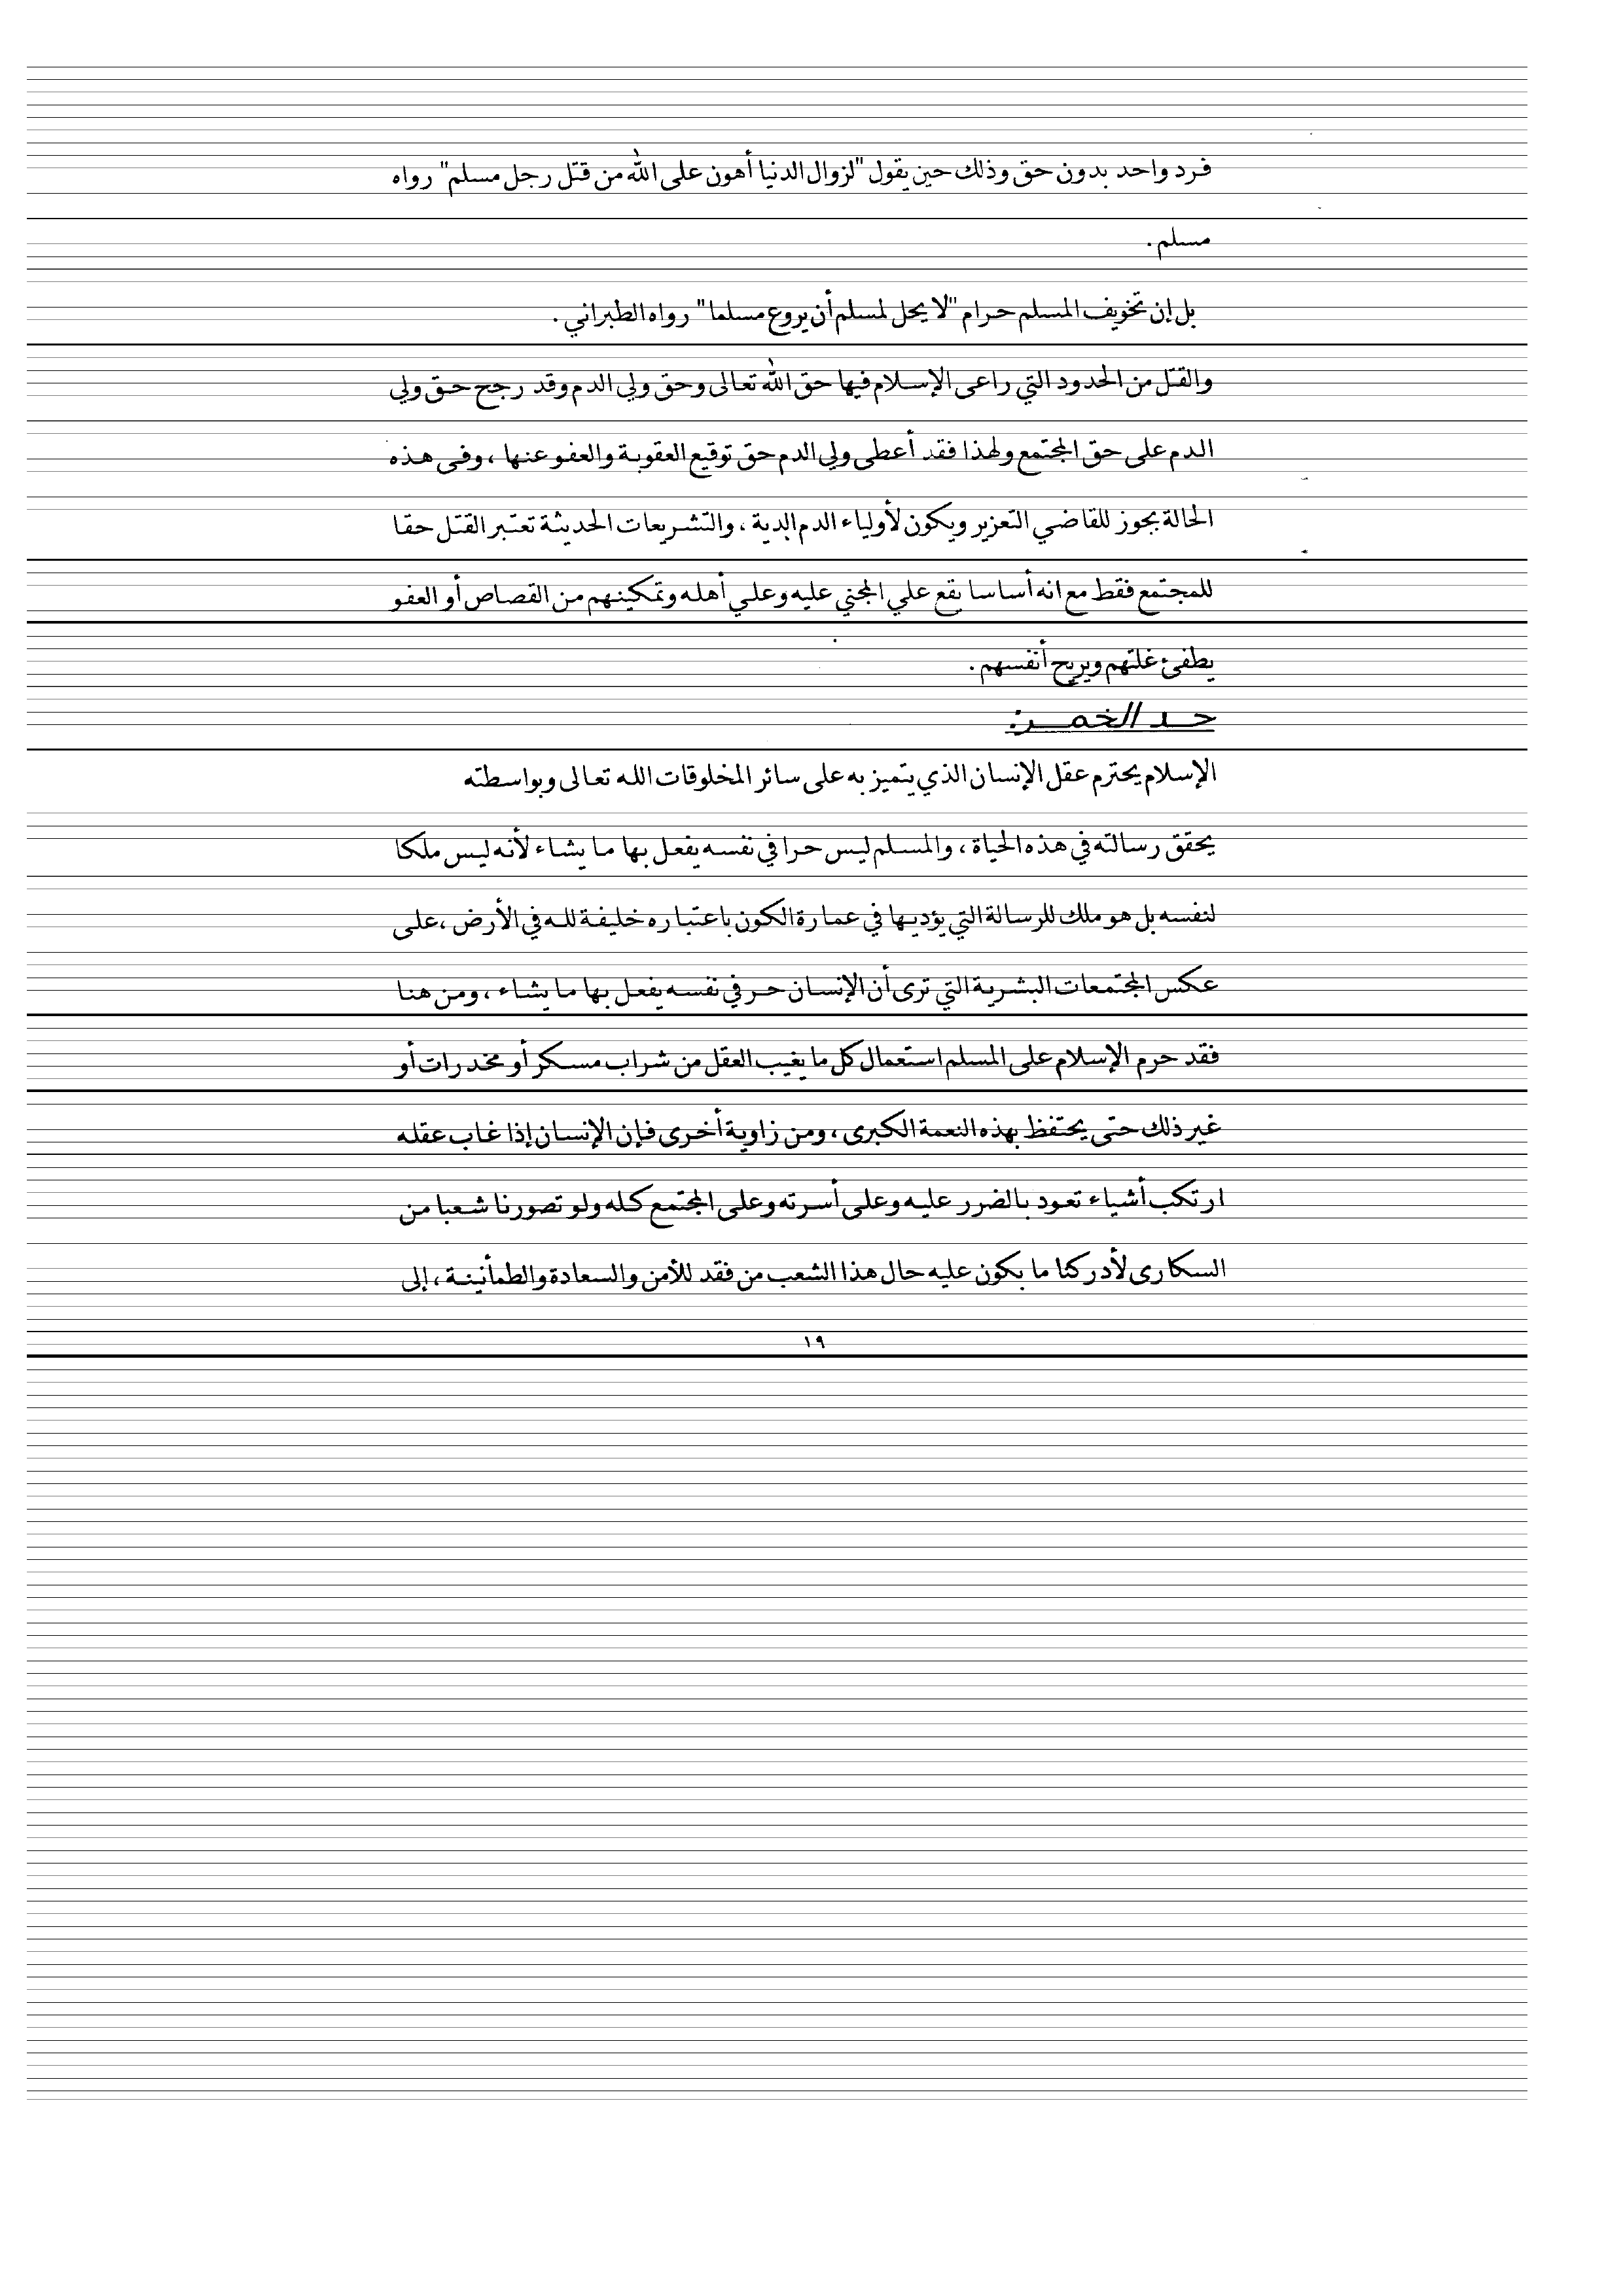 فرد واحد بدون حق وذلك حين يقول "لزوال الدنيا أهون على الله من قتل رجل مسلم" رواه
مسلم .
بل إن تخويف المسلم حرام "لا يحل لمسلم أن يروع مسلما" رواه الطبراني .
والقتل من الحدود التي راعى الإسلام فيها حق الله تعالى وحق ولي الدم وقد رجح حق ولي
الدم على حق المجتمع ولهذا فقد أعطى ولي الدم حق توقيع العقوبة والعفو عنها ، وفى هذه
الحالة يجوز للقاضي التعزير ويكون لأولياء الدم الدية ، والتشريعات الحديثة تعتبر القتل حقا
للمجتمع فقط مع انه أساسا يقع علي المجني عليه وعلي أهله وتمكينهم من القصاص أو العفو
يطفئ غلتهم ويريح أنفسهم .
حد الخمر:
الإسلام يحترم عقل الإنسان الذي يتميز به على سائر المخلوقات الله تعالى وبواسطته
يحقق رسالته في هذه الحياة ، والمسلم ليس حرا في نفسه يفعل بها ما يشاء لأنه ليس ملكا
لنفسه بل هو ملك للرسالة التي يؤديها في عمارة الكون باعتباره خليفة لله في الأرض ، على
عكس المجتمعات البشرية التي ترى أن الإنسان حر في نفسه يفعل بها ما يشاء ، ومن هنا
فقد حرم الإسلام على المسلم استعمال كل ما يغيب العقل من شراب مسكر أو مخدرات أو
غير ذلك حتى يحتفظ بهذه النعمة الكبرى ، ومن زاوية أخرى فإن الإنسان إذا غاب عقله
ارتكب أشياء تعود بالضرر عليه وعلى أسرته وعلى المجتمع كله ولو تصورنا شعبا من
السكارى لأدركنا ما يكون عليه حال هذا الشعب من فقد للأمن والسعادة والطمأنينة ، إلى
١٩